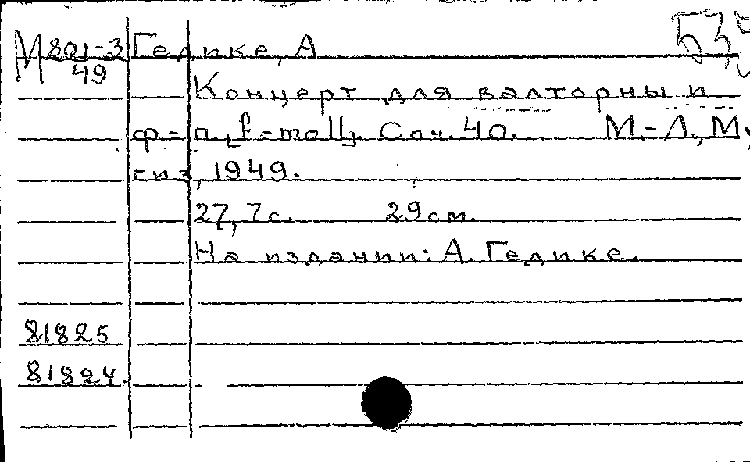 М801-3 Гедике, А
49
Концерт для валторны и
ф-п, [f-moll]. Соч. 40. М.-Л., М.
гиз, 1949.
27, 7 с. 29 см.
На издании: А. Гедике.
81825
81824